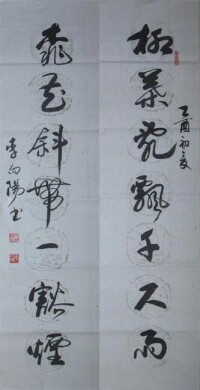 柳叶乱飘千尺雨
乙酉初夏
桃花斜带一谿烟
李向阳书